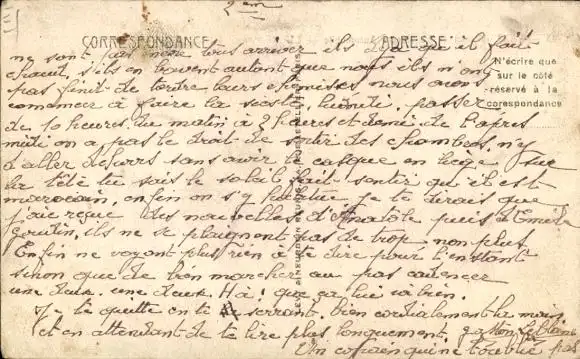 2 em
CORRESPONDANCE
ADRESSE
N'écrire que
sur le côté
réservé à la
correspondance
ne sont pas même tous arriver ils dit que il fait
chaud, s'ils en trouvent autant que nous ils n'ont
pas finit de tordre leurs chemises nous avons
commencer à faire la sieste, passer
de 10 heures du matin à 2 heures et demi de l'après
midi on a pas le droit de sortir des chambres, n'y
d'aller dehors sans avoir le casque en liège sur
la tête tu sais le soleil fait sentir qu'il est
marocain, enfin on s'y habitue, je te dirais que
j'aie reçue des nouvelles d'Anatole puis d'Emile
ils ne se plaignent pas de trop non plus
Enfin ne voyant plus rien à te dire pour l'instant
sinon que de bien marcher au pas cadencer
une deux. une deux. Ha! que ça lui va bien.
Je te quitte en te serrant bien cordialement la main
et en attendant de te lire plus longuement.
Un copain qui ne t'oublie pas